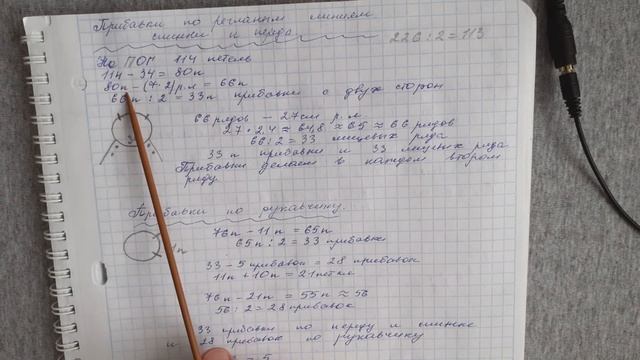 Прибавки по регланым линиям
спинки и переда
226:2=113
На ПОГ 114 петель
114 - 34 = 80п
80п - (7·2)р.л = 66п
66п : 2 = 33п прибавки с двух сторон
66 рядов - 27см р.л
27·2,4 ≈ 64,8 ≈ 65 ≈ 66 рядов
66:2 = 33 лицевых ряда
33 п прибавки и 33 лицевых ряда
Прибавки делаем в каждом втором
ряду.
Прибавки по рукавчику.
76п - 11п = 65п
65п : 2 = 33 прибавки
1п
33 - 5 прибавок = 28 прибавок
11п + 10п = 21 петля
76п - 21п = 55п ≈ 56
56 : 2 = 28 прибавок
33 прибавки по переду и спинке
и 28 прибавок по рукавчику
= 5